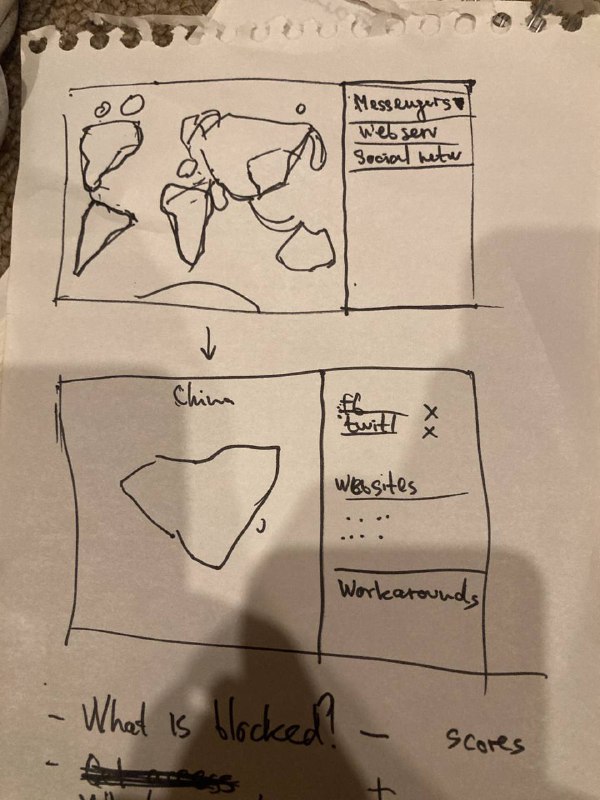 Messengers
Webserv
Social netw
China
fb
twitt
Websites
Workarounds
- What is blocked? - scores
-